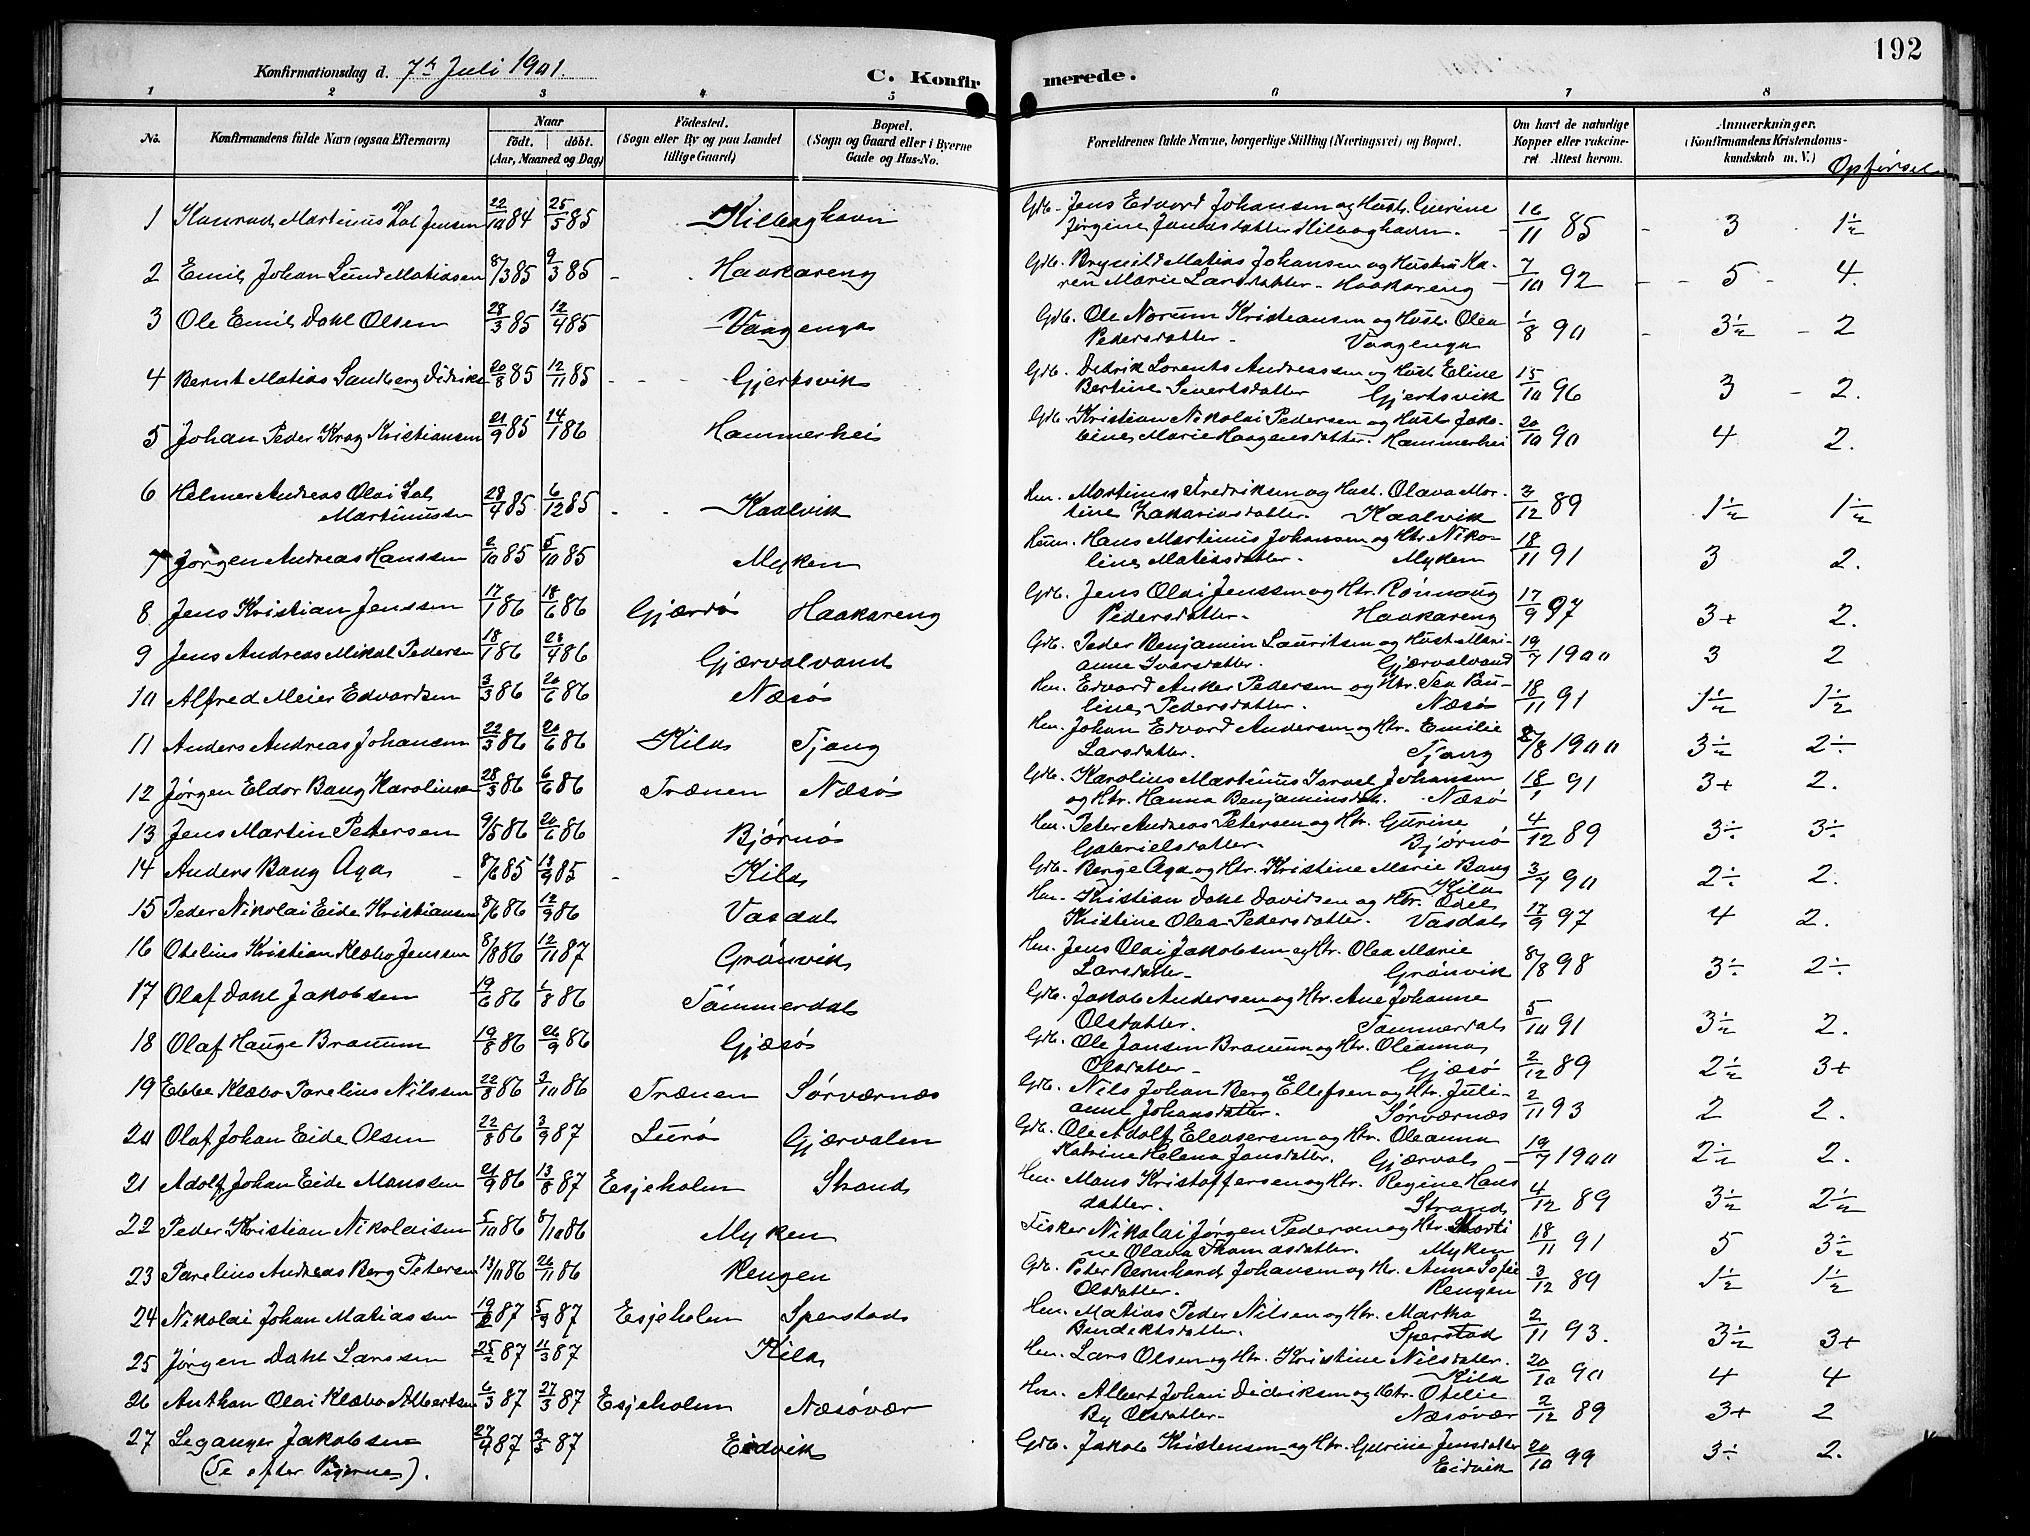 192
Konfirmationsdag d. 7de Juli 1901.
C. Konfirmerede.
1 2 3 4 5 6 7 8
No.
Konfirmandens fulde Navn (ogsaa Efternavn)
Naar
födt. döbt.
(Aar, Maaned og Dag)
Födested.
(Sogn eller By og paa Landet
tillige Gaard)
Bopæl.
(Sogn og Gaard eller i Byerne
Gade og Hus-No.
Forældrenes fulde Navne, borgerlige Stilling (Næringsvei) og Bopæl.
Om havt de naturlige
Kopper eller vakcine-
ret Attest herom.
Anmærkninger.
(Konfirmandens Kristendoms-
kundskab m. V.)
Opførsel
1 Konrad Martinus Jensen 22/10 84 25/5 85 Kilboghavn
Gdb. Jens Edvard Johansen og Hustr. Gurine
Jørgine Kilboghavn. 16/11 85 3 1½
2 Emil Johan Lund Matiasen 8/3 85 9/3 85 Haakareng
Gdb. Brynild Matias Johansen og Hustru Ka-
ren Marie Larsdatter. Haakareng 7/10 92 5 4.
3 Ole Emil Dahl Olsen 28/3 85 12/4 85 Vaagenga
Gdb. Ole Norum Kristiansen og Hustr. Olea
Pedersdatter. Vaagenga 1/8 90 3½ 2
4 Bernt Matias Sandberg Didriks 20/8 85 12/11 85 Gjertsvik
Gdb. Didrik Lorents Andreassen og Hust. Eline
Bertine Sivertsdatter Gjertsvik 15/10 96 3 2.
5 Johan Peder Krog Kristiansen 21/9 85 14/1 86 Hammerhei
Gdb. Kristian Nikolai Pedersen og Hustr. Jako-
bine Marie Haagensdatter. Hammerhei 20/10 90 4 2.
6 Hilmer Andreas Olai
Martinussen 28/4 85 6/12 85 Kaalvik
Hm. Martinus Fredriksen og Hust. Olava Mor-
tine Zakariasdatter. Kaalvik 3/12 89 1½ 1½
7 Jørgen Andreas Hanssen 2/10 85 5/10 85 Myken
Huum. Hans Martinus Johansen og Htr. Niko-
line Matiasdatter. Myken 18/11 91 3 2.
8 Jens Kristian Jenssen 17/1 86 18/6 86 Gjærdø Haakareng
Gdb. Jens Olai Jenssen og Htr. Rønnoug
Pedersdatter. Haakareng 17/9 97 3+ 2.
9 Jens Andreas Mikal Pedersen 18/1 86 23/4 86 Gjærvalvand
Gdb. Peder Benjamin Lauritsen og Hust Mari-
anne Iversdatter. Gjærvalvand 19/7 1900 3 2
10 Alfred Meier Edvardsen 3/3 86 20/6 86 Næsø
Hm. Edvard Anker Pedersen og Htr. Tea Pau-
line Pedersdatter. Næsø 18/11 91 1½ 1½
11 Anders Andreas Johansen 22/3 86 20/6 86 Kila Tjong
Hm. Johan Edvard Andersen og Htr. Emilie
Larsdatter. Tjong 8/8 1900 3½ 2÷
12 Jørgen Eldor Bang Karoliusen 28/3 86 6/6 86 Trænen Næsø
Gdb. Karolius Martinus Israel Johansen
og Htr. Hanna Benjaminsdtr. Næsø 18/1 91 3+ 2.
13 Jens Martin Petersen 9/5 86 20/6 86 Bjørnø
Hm. Peter Andreas Petersen og Htr. Gurine
Gabrielsdatter. Bjørnø 4/12 89 3÷ 3÷
14 Anders Bang Aga 8/6 85 13/9 85 Kila
Gdb. Berge Aga og Htr. Kristine Marie Bang
Kila 3/7 90 2÷ 2.
15 Peder Nikolai Eide Kristiansen 8/6 86 12/9 86 Vasdal
Hm. Kristian Dahl Davidsen og Htr. Odel
Kristine Olea Pedersdatter. Vasdal 17/9 97 4 2.
16 Otelius Kristian Klæbo Jenssen 8/8 86 12/11 87 Grønvik
Hm. Jens Olai Jakobsen og Htr. Olea Marie
Larsdatter. Grønvik 8/8 98 3÷ 2÷
17 Olaf Dahl Jakobsen 19/6 86 1/8 86 Tømmerdal
Gdb. Jakob Andersen og Htr. Ane Johanne
Olsdatter. Tømmerdal 5/10 91 3½ 2.
18 Olaf Hauge Braum 19/8 86 26/9 86 Gjæsø
Gdb. Ole Jansen Braum og Htr. Oleanna
Olsdatter Gjæsø 2/12 89 2½ 3+
19 Ebbe Klæbo Parelius Nilssen 22/8 86 3/10 86 Trænen Sørværnæs
Gdb. Nils Johan Berg Ellefsen og Htr. Juli-
anne Johansdatter. Sørværnæs 2/11 93 2 2.
20 Olaf Johan Eide Olsen 22/8 86 3/9 87 Lurø Gjærvalen
Gdb. Ole Adolf Eleasersen og Htr. Oleanna
Katrine Helena Jansdatter. Gjærval 19/7 1900 2½ 2.
21 Adolf Johan Eide Monssen 21/9 86 13/8 87 Esjeholm Strand
Hm. Mons Kristoffersen og Htr. Regine Hans
datter. Strand 4/12 89 3½ 2½
22 Peder Kristian Nikolaisen 5/10 86 8/10 86 Myken
Fisker Nikolai Jørgen Pedersen og Htr. Marti
ne Olava Thomasdatter. Myken 18/11 91 5 3÷
23 Parelius Andreas Berg Petersen 13/11 86 26/11 86 Rengen
Gdb. Peter Bernhard Johansen og Htr. Anna Sofie
Olsdatter. Rengen 3/12 89 1½ 1½
24 Nikolai Johan Matiassen 19/2 87 5/9 87 Esjeholm Sperstad
Hm. Matias Peder Nilsen og Htr. Martha
Bendiktsdatter. Sperstad 2/11 93. 3½ 3+
25 Jørgen Dahl Larssen 25/2 87 11/3 87 Kila
Hm. Lars Olsen og Htr. Kristine Nilsdatter.
Kila 20/10 90 4 4
26 Anthon Olai Klæbo Albertsen 6/3 87 27/3 87 Esjeholm Næsøvær
Hm. Albert Johan Didriksen og Htr. Otelie
By Olsdatter. Næsøvær 2/12 89 3+ 2
27 Leganger Jakobsen 27/4 87 3/5 87 Eidvik
(Se efter Pigerne).
Gdb. Jakob Kristensen og Htr. Gurine Jensdatter
Eidvik 20/10 99 3÷ 2.